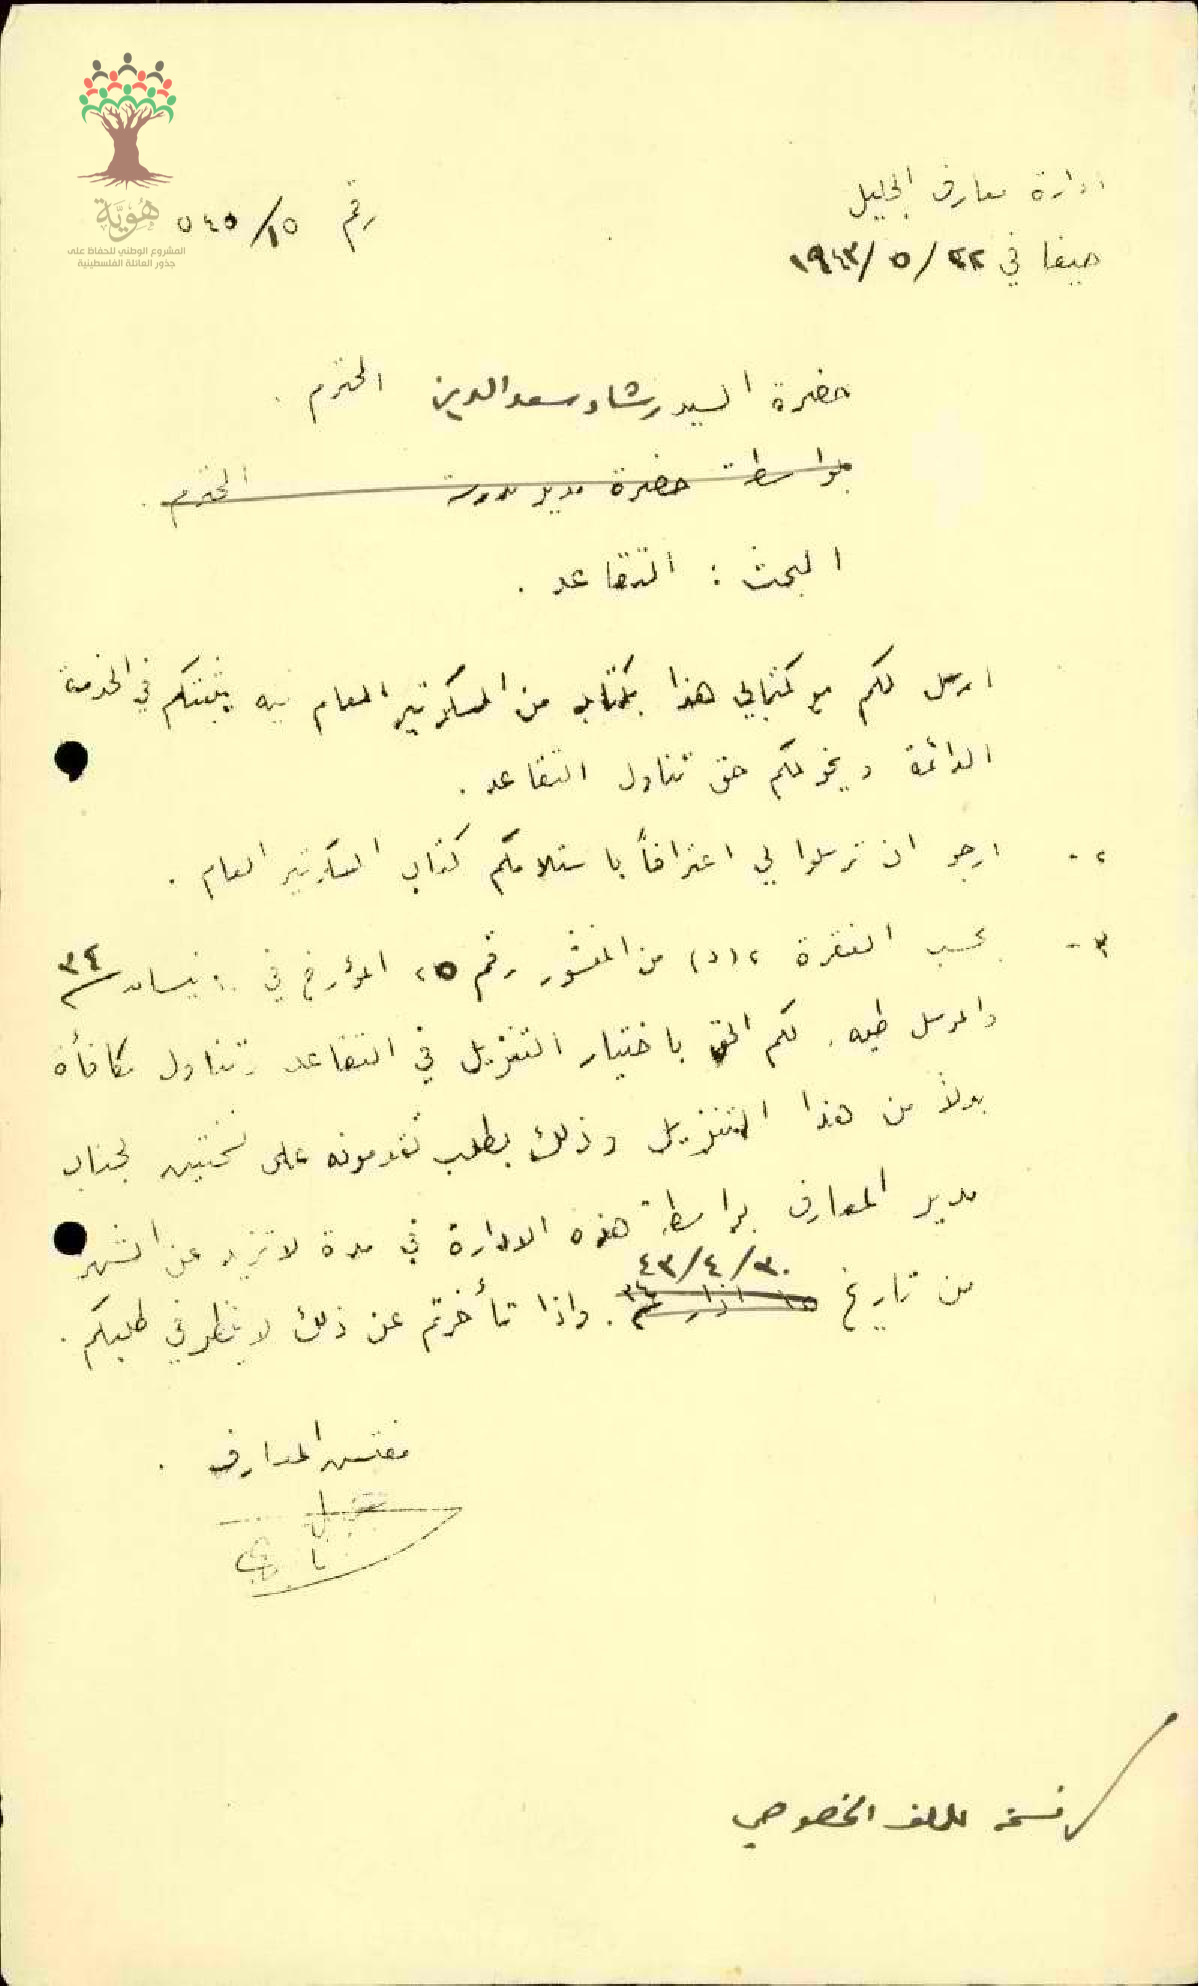 هُوِيَّة
المشروع الوطني للحفاظ على
جذور العائلة الفلسطينية
ادارة معارف الجليل
رقم ١٥/٥٤٥
حيفا في ٢٢/٥/١٩٤٣
حضرة السيد رشاد سعد الدين المحترم .
بواسطة حضرة مدير مدرسة المحترم .
البحث : التقاعد .
ارسل لكم مع كتابي هذا كتاب من السكرتير العام فيه يثبتكم في الخدمة
الدائمة ويخولكم حق تناول التقاعد .
٢- ارجو ان ترسلوا لي اعترافاً باستلامكم كتاب السكرتير العام .
٣- بحسب الفقرة ٢(د) من المنشور رقم ٢٥ المؤرخ في ١٠ نيسان سنة ٣٤
والمرسل طيه . لكم الحق باختيار التنزيل في التقاعد وتناول مكافأة
بدلاً من هذا التنزيل وذلك بطلب تقدمونه على نسختين لجناب
مدير المعارف بواسطة هذه الادارة في مدة لا تزيد عن الشهر
٣٠/٤/٤٣
من تاريخ اذار سنة ٣٤ . واذا تأخرتم عن ذلك لا ينظر في طلبكم .
مفتش المعارف .
نسخة للملف الخصوصي